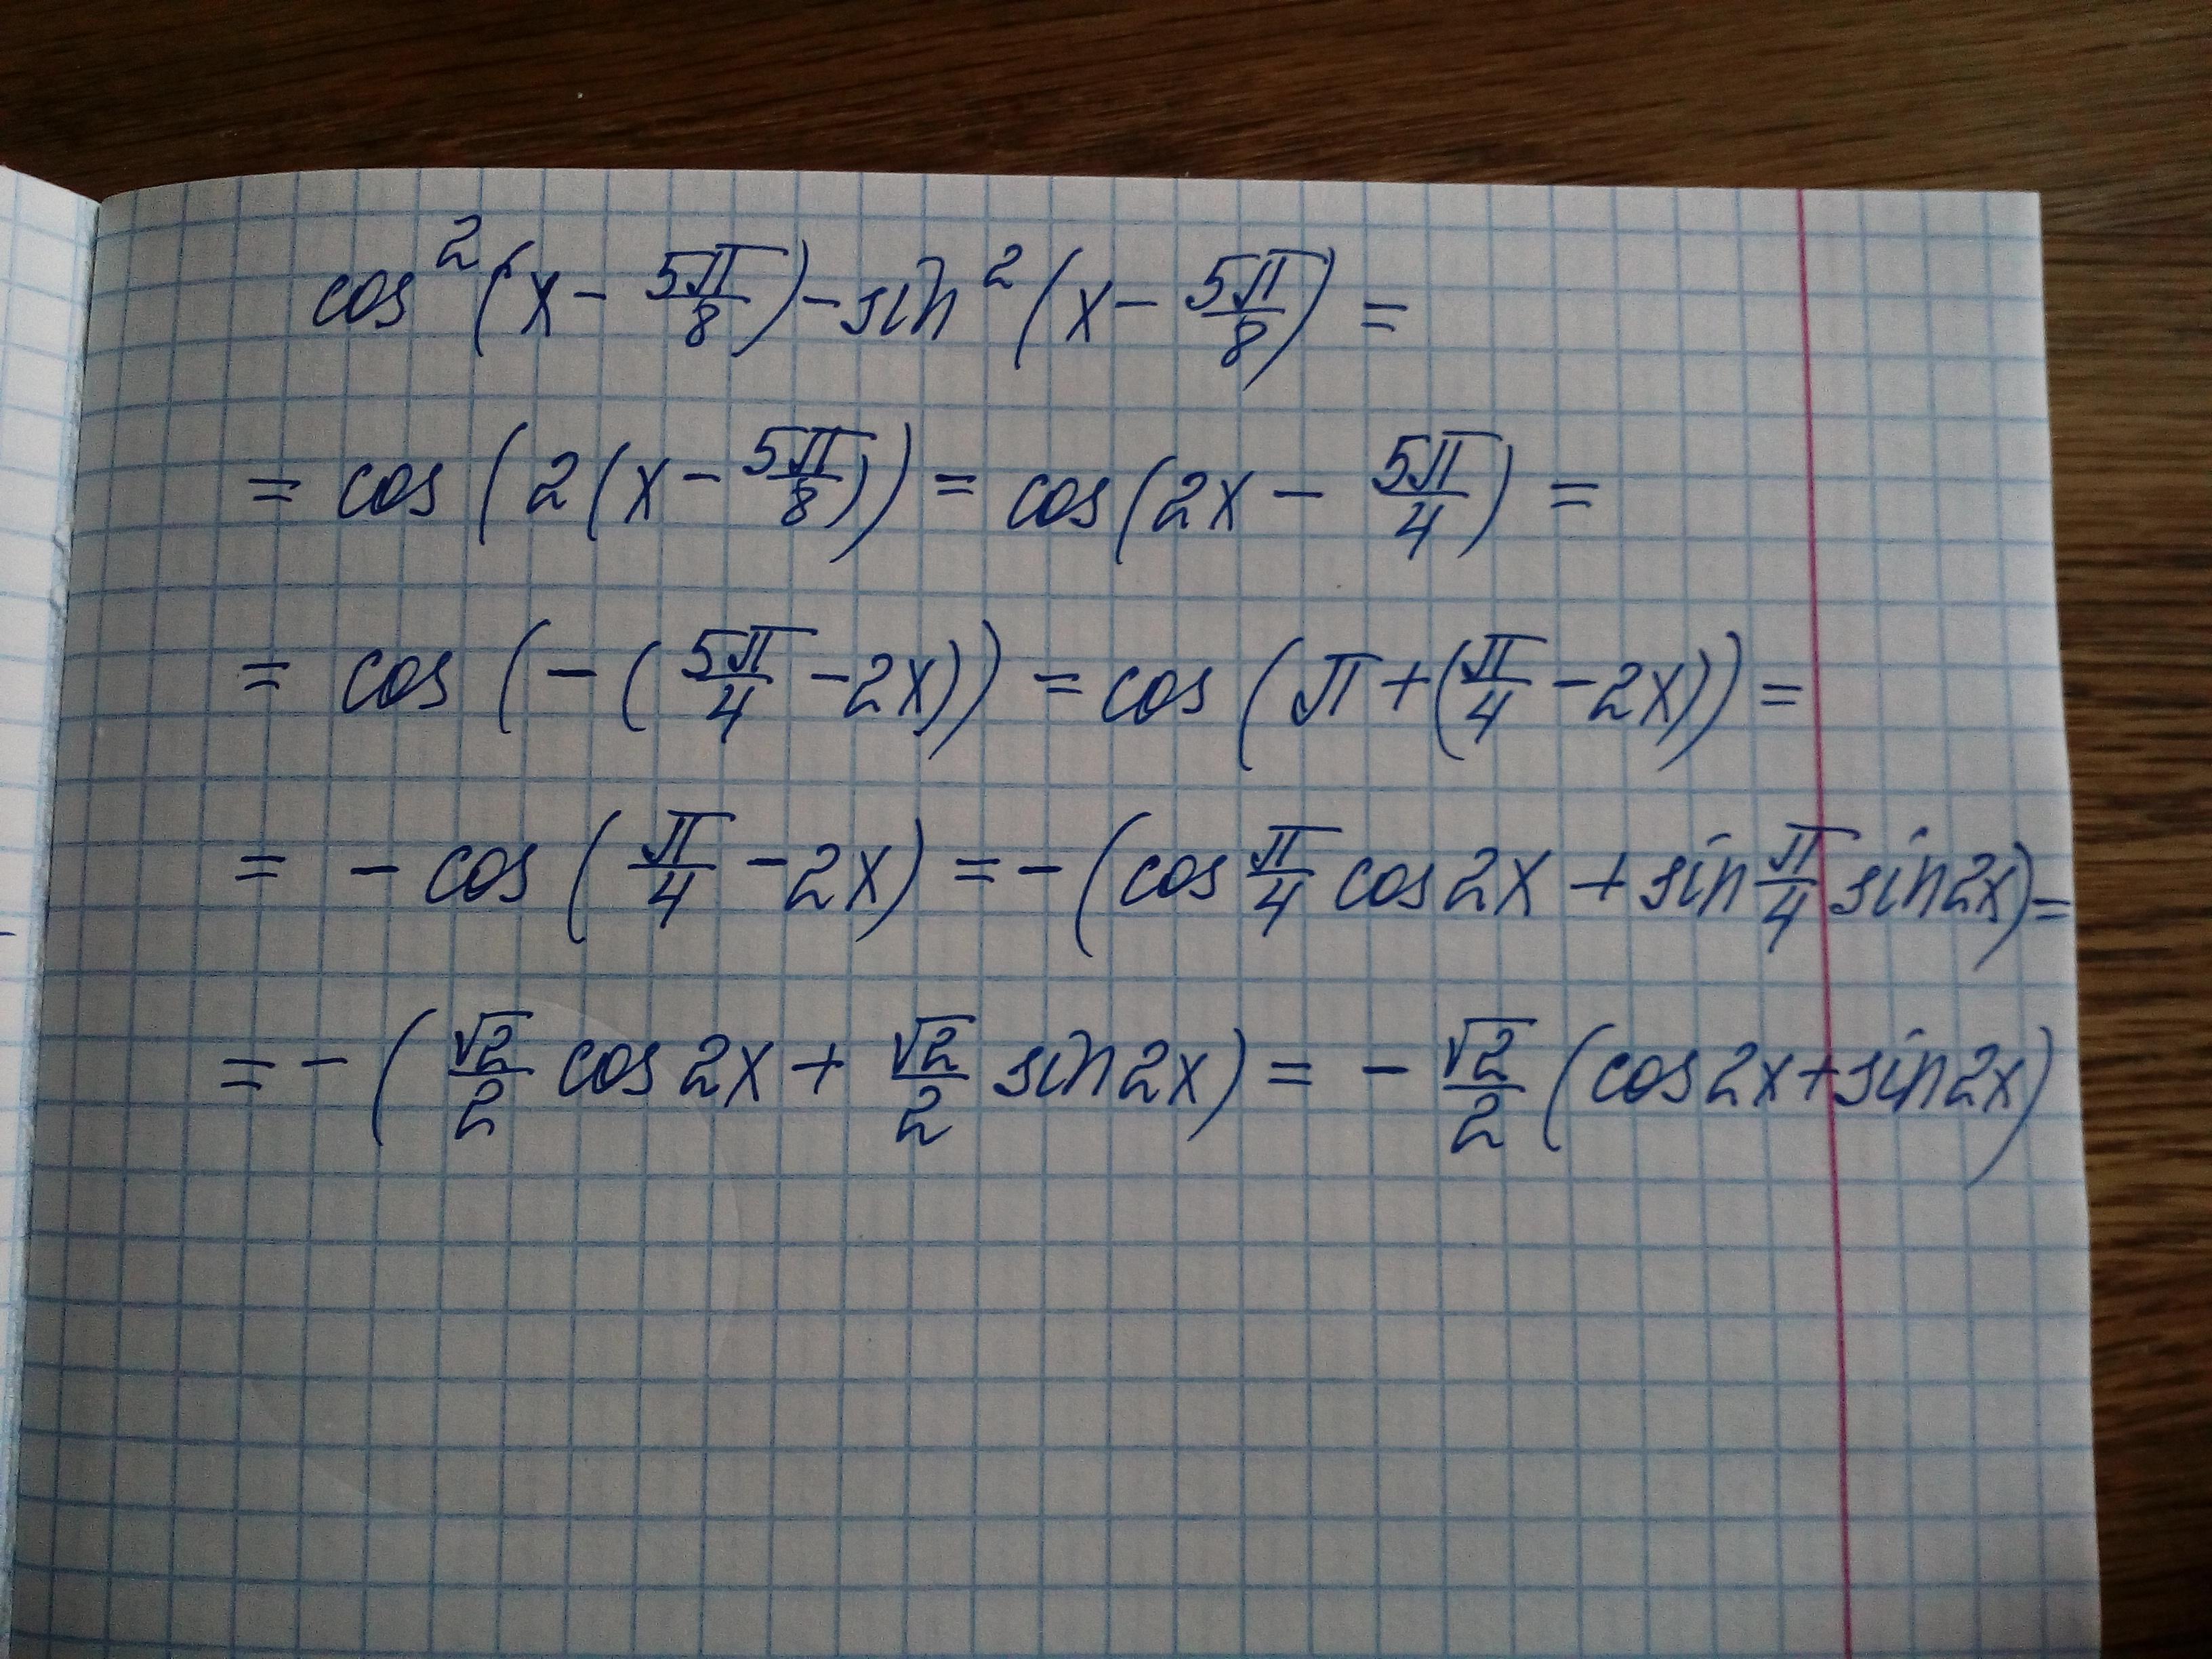 cos²(x - 5π/8) - sin²(x - 5π/8) =
= cos(2(x - 5π/8)) = cos(2x - 5π/4) =
= cos(-(5π/4 - 2x)) = cos(π + (π/4 - 2x)) =
= - cos(π/4 - 2x) = -(cos π/4 cos 2x + sin π/4 sin 2x) =
= -(√2/2 cos 2x + √2/2 sin 2x) = - √2/2 (cos 2x + sin 2x)